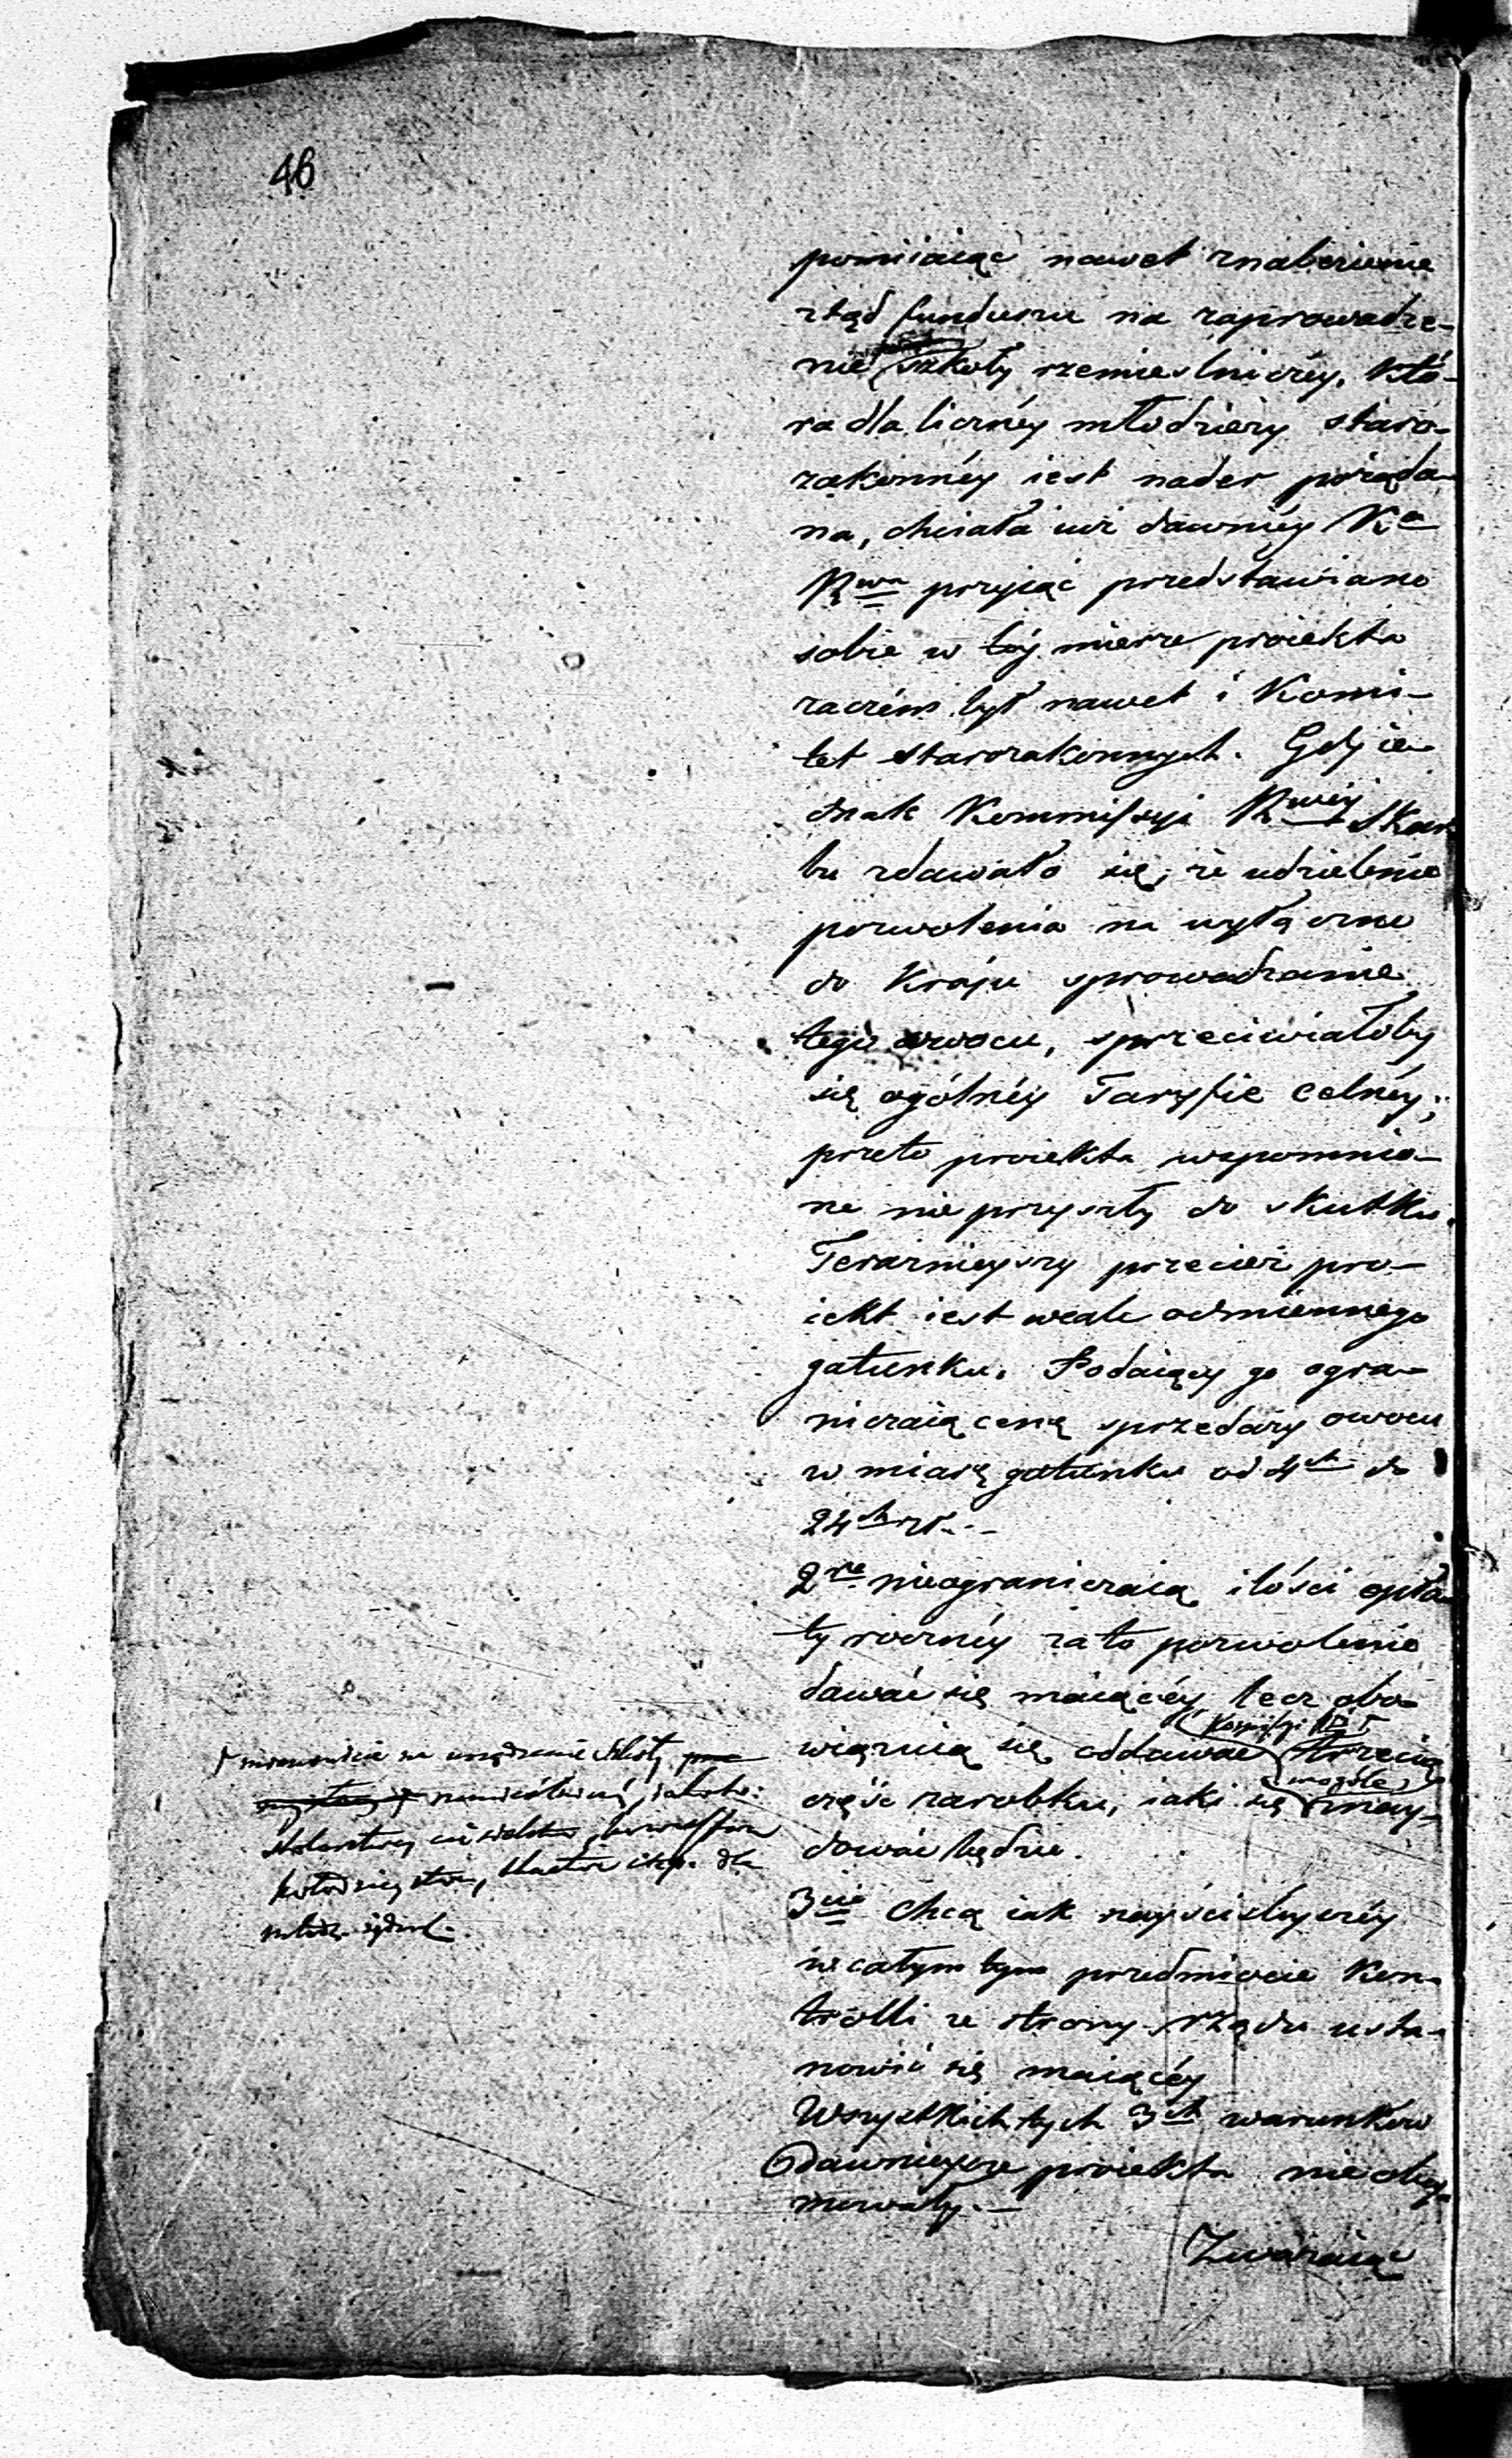 46
pomiiaiąc nawet znalezienie
ztąd funduszu na zaprowadze-
nie szkoły rzemieslniczéy, któ-
ra dla licznéy młodzieży staro-
zakonnéy iest nader pożąda-
na, chciała iuż dawniéy K.a
R.wa przyiąć przedstawiane
sobie w téy mierze proiekta
zaczém był nawet i Komi-
tet starozakonnych. Gdy ie-
dnak Kommissyi R.wéy Skar-
bu zdawało się, że udzielenie
pozwolenia na wyłączne
do Kraju sprowadzanie
tego owocu, sprzeciwiałoby
się ogólnéy Taryfie celnéy;
przeto proiekta wspomnio-
ne nie przyszły do skutku.
Teraznieyszy przecież pro-
iekt iest wcale odmiennego
gatunku. Podaiący go ogra-
niczaią cenę sprzedaży owocu
w miarę gatunku od 4ch do
24ch zł. -
2re nieograniczaią ilości opła-
ty rocznéy za to pozwolenie
dawać się maiącéy lecz obo-
więzuią się oddawać trzecią
część zarobku, iaki się znay-
dować będzie.
3cie chcą iak nayściśleyszéy
w całym tym przedmiocie Kon-
trolli ze strony rządu usta-
nowić się maiącéy
Wszystkich tych 3ch warunków
dawnieysze proiekta nie obey-
mowały. -
Zważaiąc
mianowicie na urządzenie szkoły
rzemieślniczéy, iakoto:
stolarstwa
kołodzieystwa, itp. dla
młodz. żydowsk.